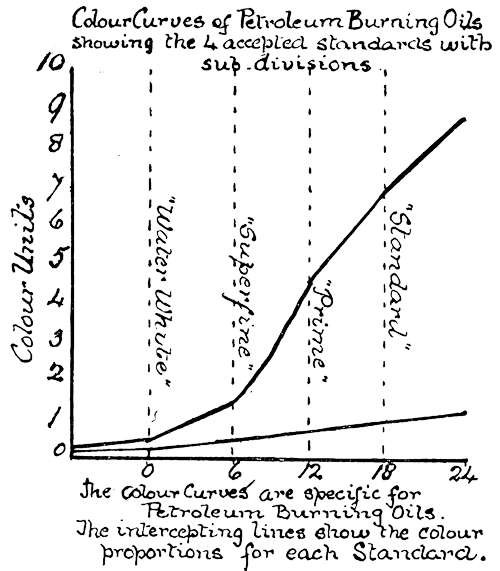 Colour Curves of Petroleum Burning Oils
showing the 4 accepted standards with
sub.divisions
10
9
8
7
6
5
4
3
2
1
0
Colour Units
"Water White"
"Superfine"
"Prime"
"Standard"
0 6 12 18 24
The colour Curves are specific for
Petroleum Burning Oils.
The intercepting lines show the colour
proportions for each Standard.